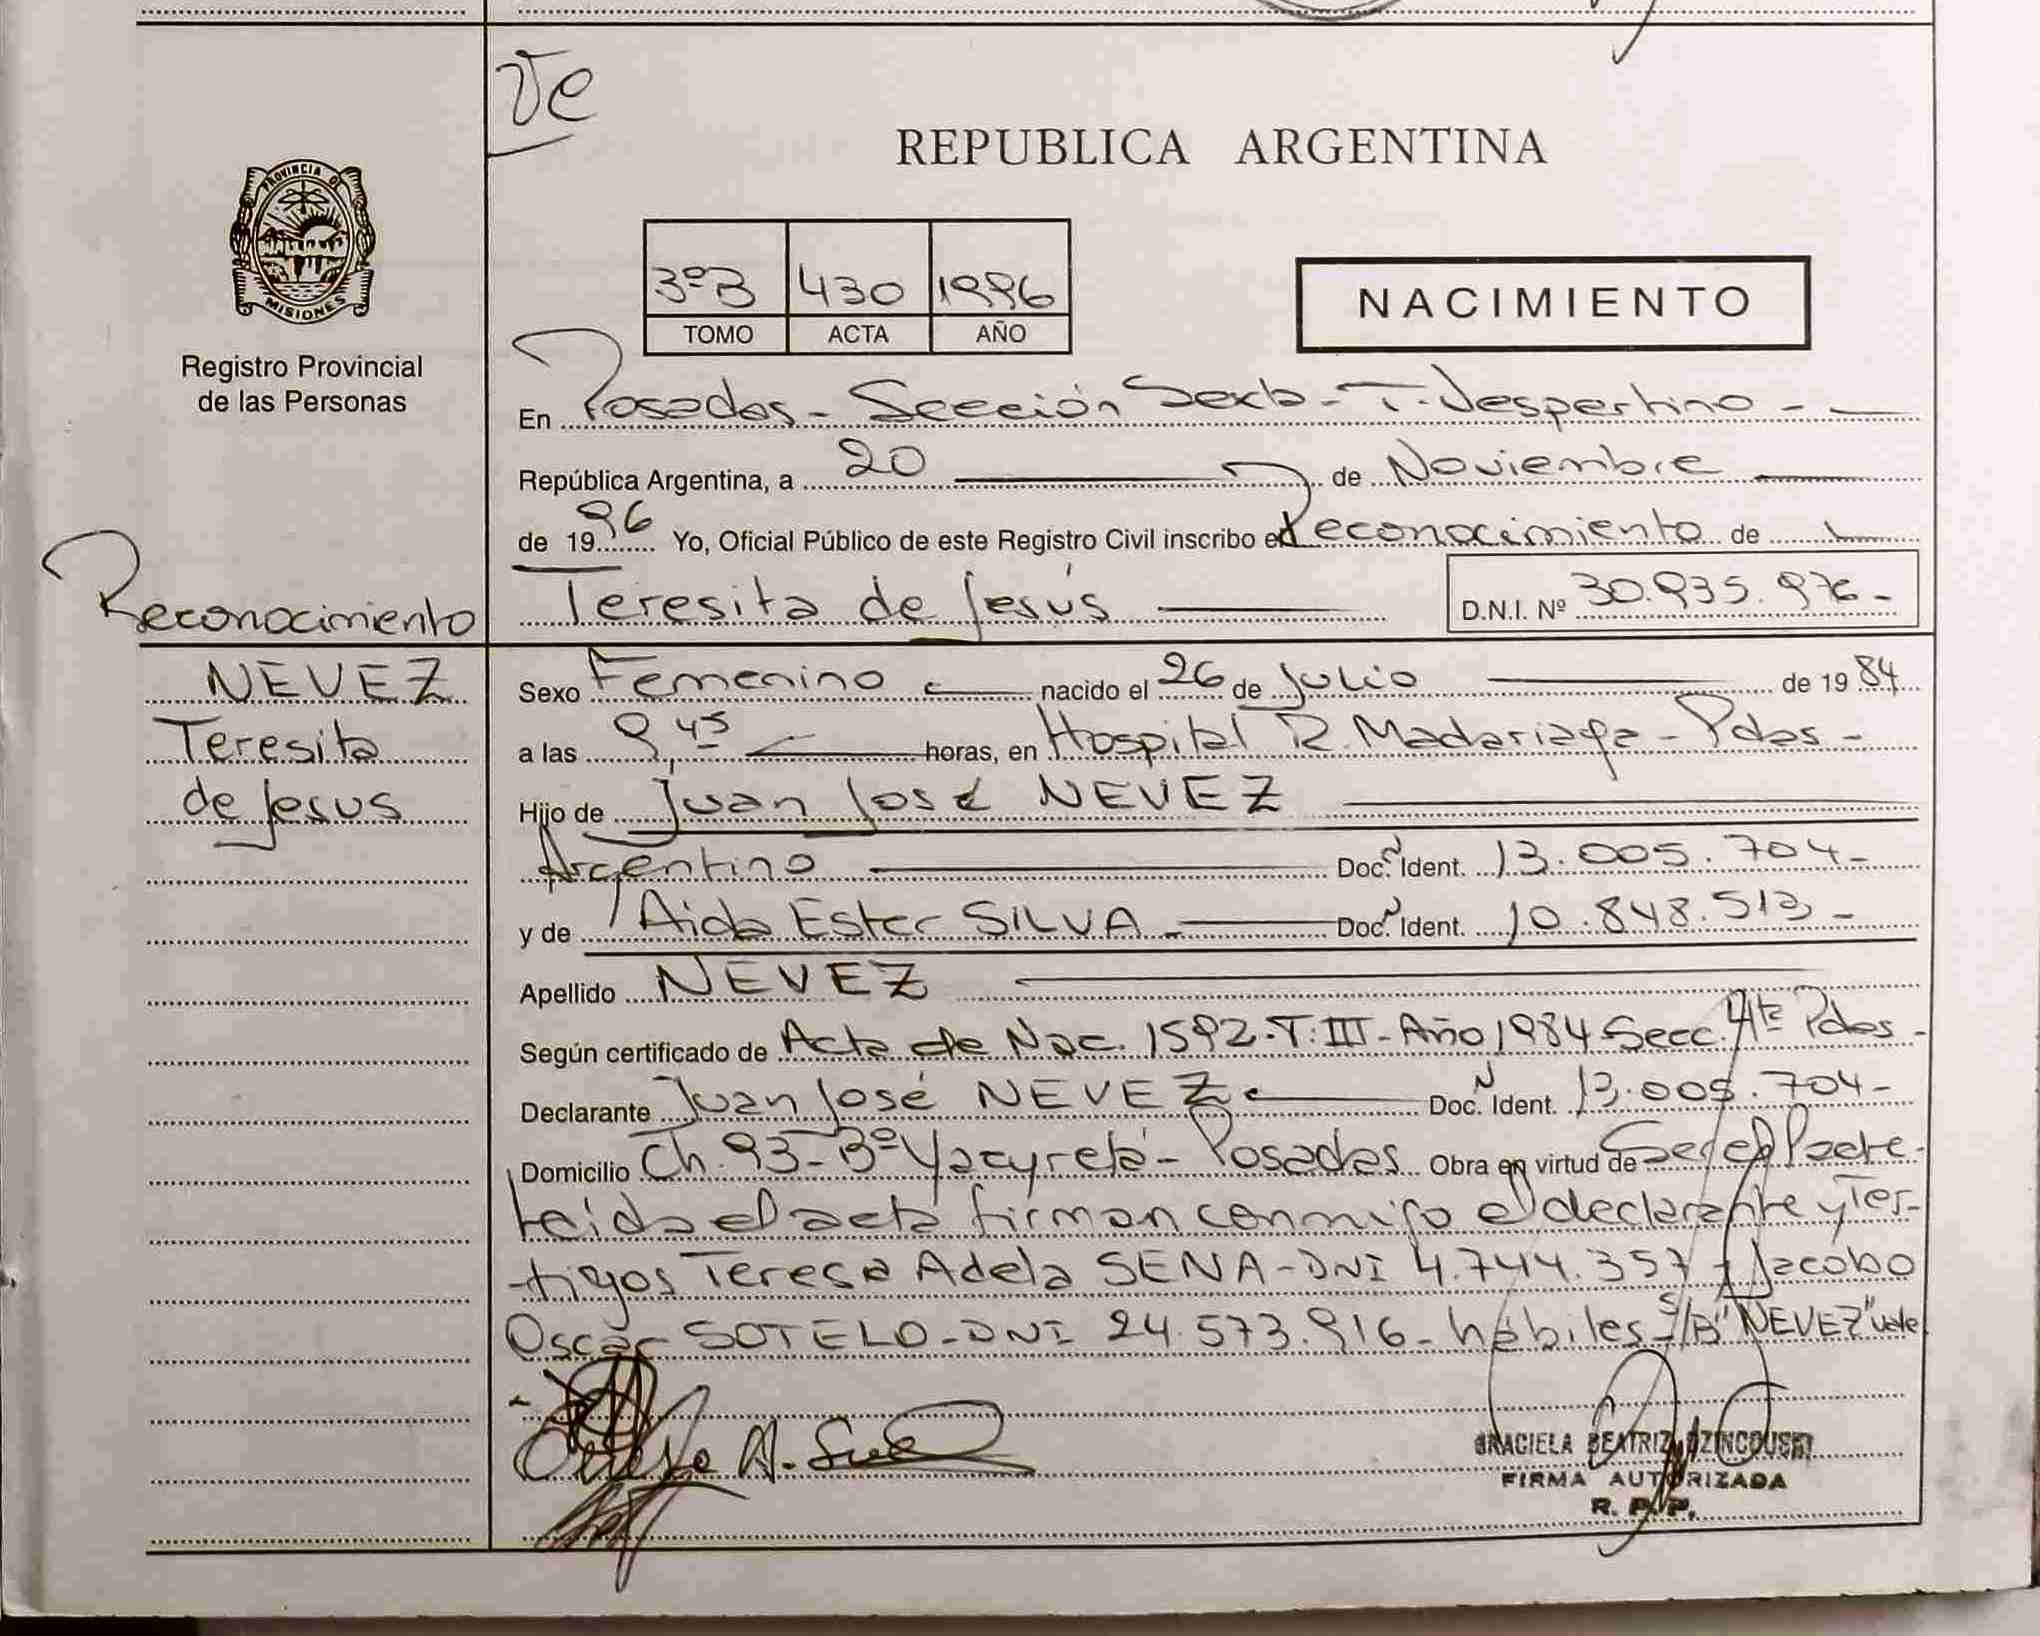 Ve
REPUBLICA ARGENTINA
PROVINCIA DE
MISIONES
3ºB 430 1996
TOMO ACTA AÑO
NACIMIENTO
Registro Provincial
de las Personas
En Posadas - Sección Sexta - T. Vespertino -
República Argentina, a 20 de Noviembre
de 1996 Yo, Oficial Público de este Registro Civil inscribo el Reconocimiento de
Teresita de Jesús D.N.I. Nº 30.935.976-
Reconocimiento
NEVEZ
Teresita
de Jesus
Sexo Femenino nacido el 26 de Julio de 1984
a las 9,45 horas, en Hospital R. Madariaga - Pdas -
Hijo de Juan José NEVEZ
Argentino Doc. N Ident. 13.005.704-
y de Aida Ester SILVA Doc. N Ident. 10.848.513-
Apellido NEVEZ
Según certificado de Acta de Nac. 1592-T:III-Año 1984 Secc. 4ta Pdas-
Declarante Juan José NEVEZ Doc. N Ident. 13.005.704-
Domicilio Ch. 93-Bº Yacyretá - Posadas Obra en virtud de Ser el Padre-
Leida el acta firman conmigo el declarante y Tes-
tigos Teresa Adela SENA-DNI 4.744.357 y Jacobo
Oscar SOTELO-DNI 24.573.916- hábiles-S/B "NEVEZ" vale
GRACIELA BEATRIZ DZINCOUSKI
FIRMA AUTORIZADA
R. P. P.